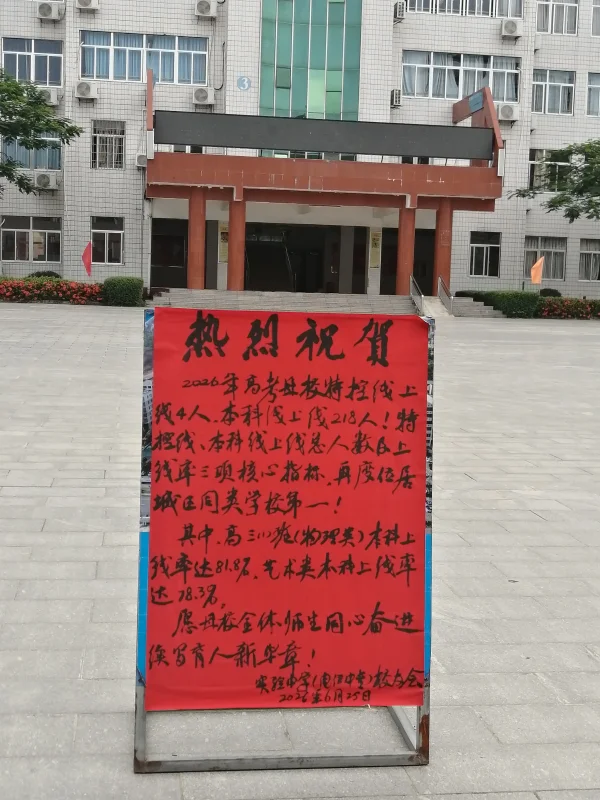 3
热烈祝贺
2026年高考母校特控线上
线4人、本科线上线218人！特
控线、本科线上线总人数及上
线率三项核心指标，再度位居
城区同类学校第一！
其中，高三(1)班(物理类)本科上
线率达81.8%，艺术类本科上线率
达78.3%。
愿母校全体师生同心奋进
续写育人新华章！
实验中学(中学)校友会
2026年6月25日